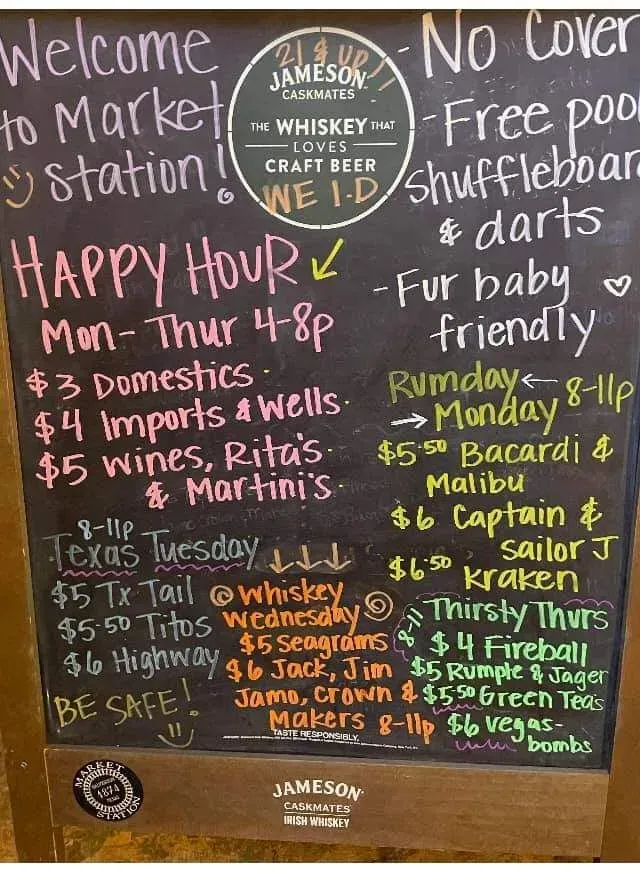 Welcome
to Market
station!
21 & UP!!
JAMESON
CASKMATES
THE WHISKEY THAT
LOVES
CRAFT BEER
WE I.D
- No Cover
- Free pool
shuffleboar
& darts
- Fur baby
friendly
HAPPY HOUR
Mon- Thur 4-8p
$3 Domestics
$4 Imports & Wells
$5 Wines, Rita's
& Martini's
Rumday 8-11p
Monday
$5.50 Bacardi &
Malibu
$6 Captain &
sailor J
$6.50 Kraken
8-11p
Texas Tuesday
$5 Tx Tail
$5.50 Titos
$6 Highway
BE SAFE!
Whiskey
Wednesday
$5 Seagrams
$6 Jack, Jim
Jamo, Crown &
Makers 8-11p
Thirsty Thurs
8-11
$4 Fireball
$5 Rumple & Jager
$5.50 Green Tea's
$6 Vegas-
bombs
TASTE RESPONSIBLY.
MARKET
1874
STATION
JAMESON
CASKMATES
IRISH WHISKEY